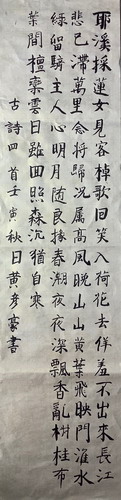 耶溪採蓮女見客棹歌回笑入荷花去佯羞不出來長江
悲已滯萬里念將歸況屬高風晚山山黃葉飛映門淮水
綠留騎主人心明月隨良掾春潮夜夜深飄香亂椒桂布
葉間檀欒雲日雖回照森沉猶自寒
古詩四首壬寅秋日黃彥豪書